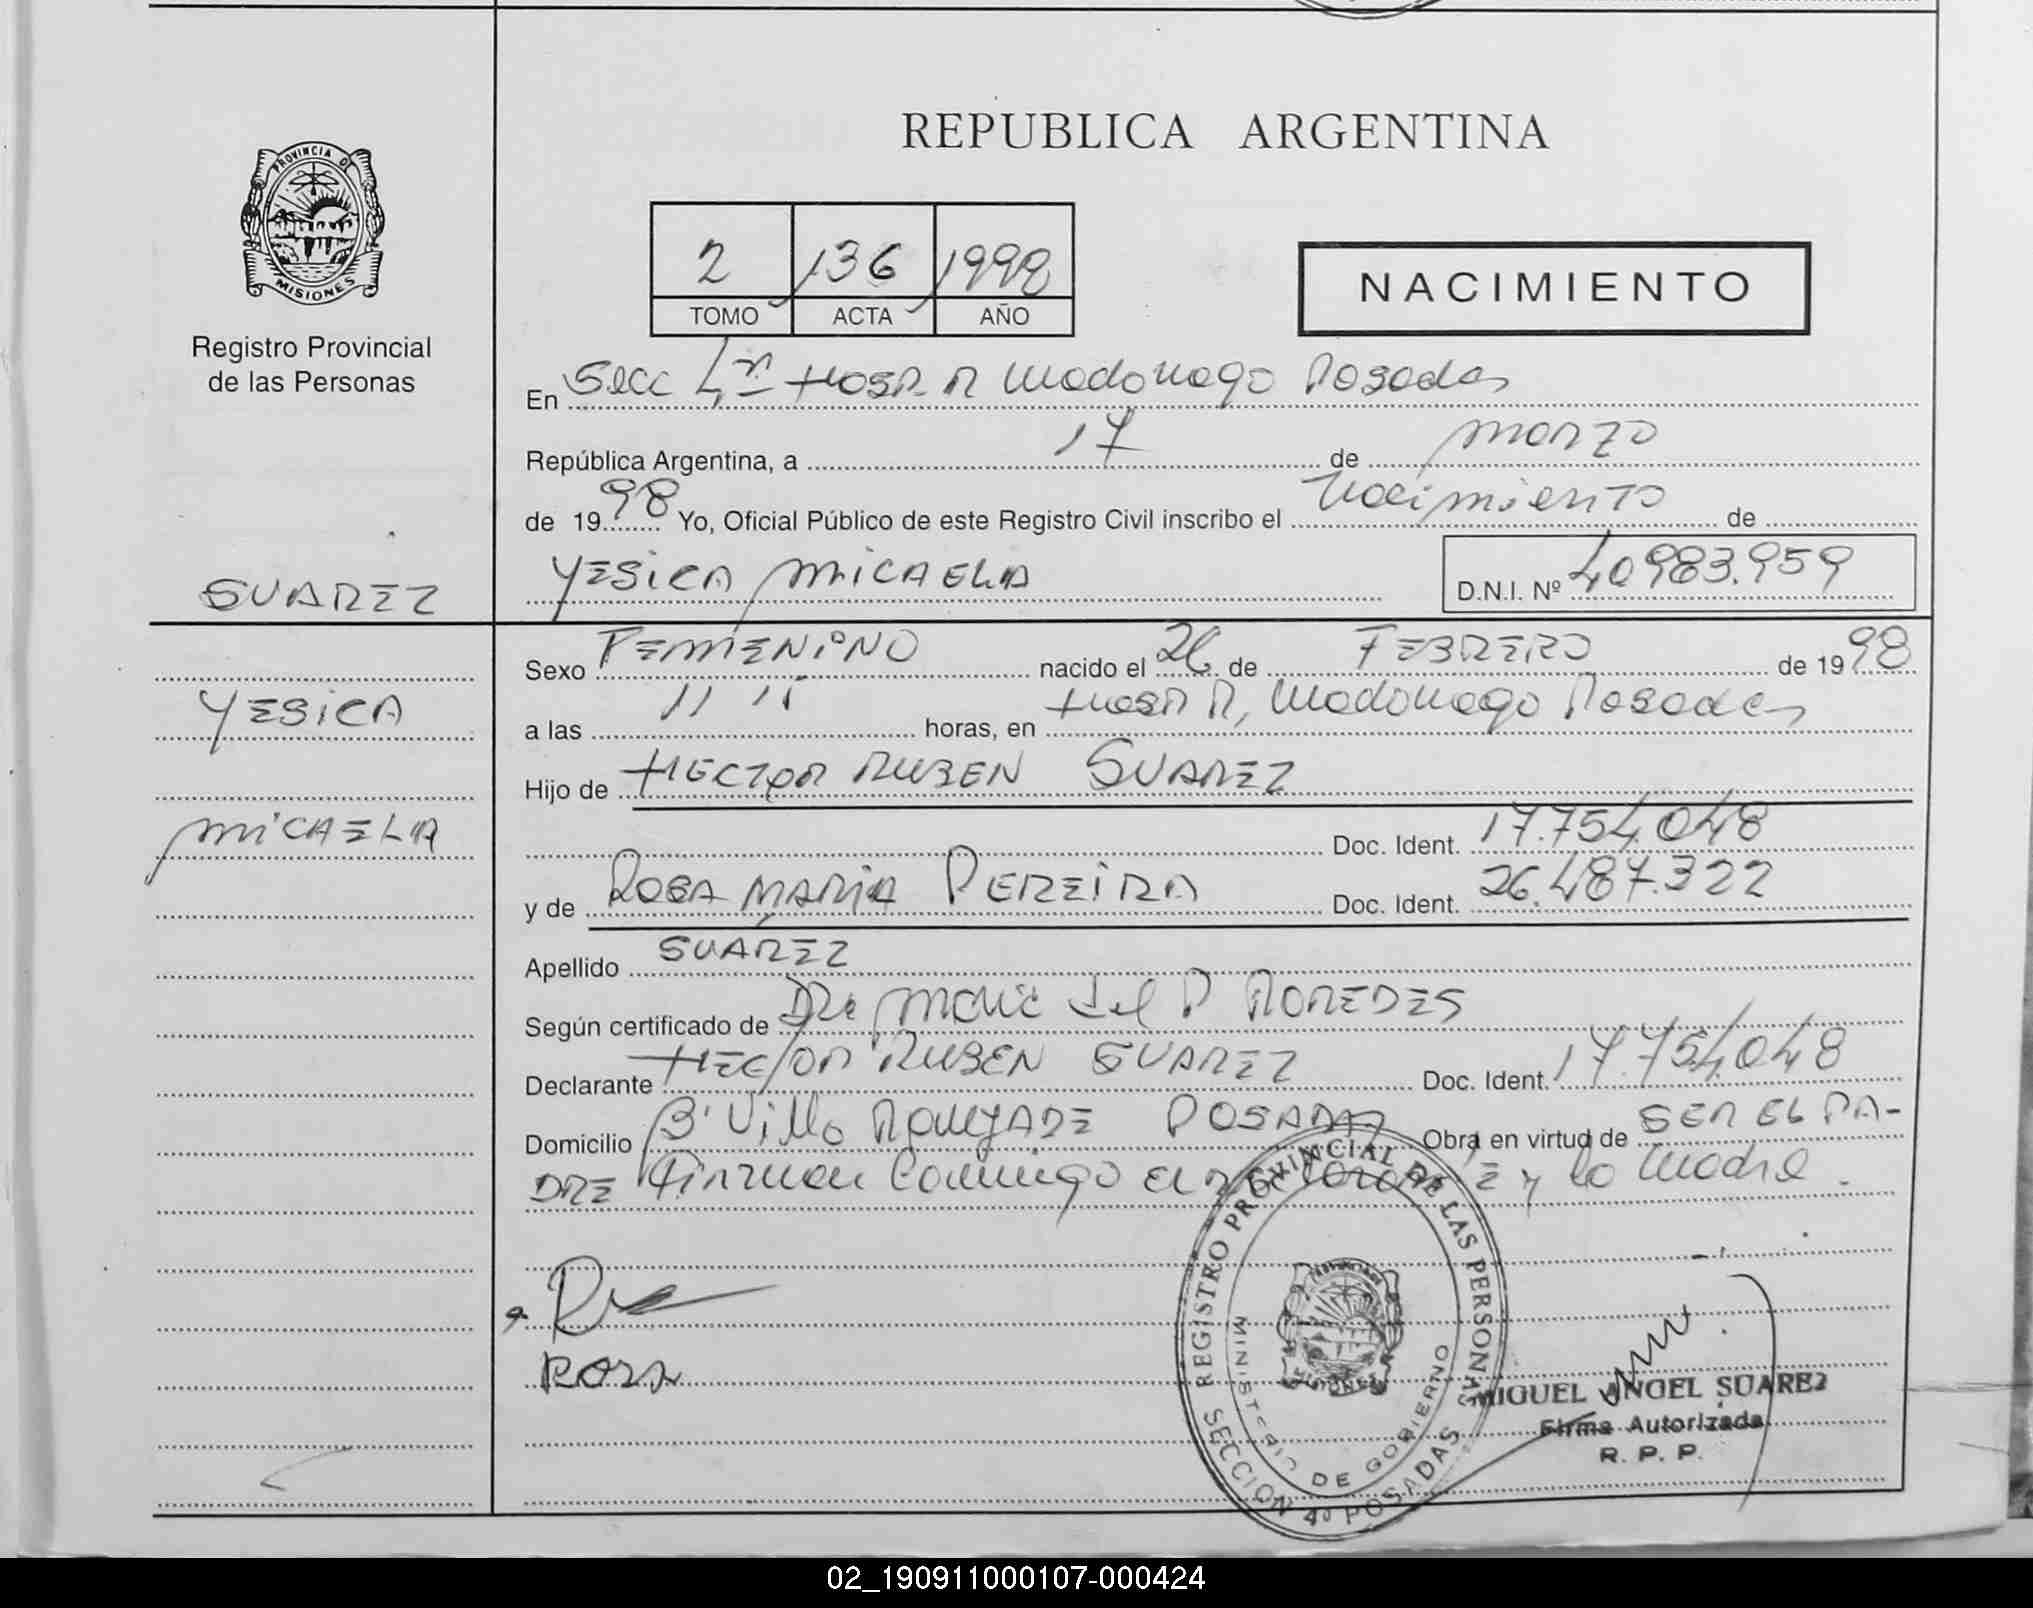 REPUBLICA ARGENTINA
PROVINCIA DE
MISIONES
Registro Provincial
de las Personas
2 136 1998
TOMO ACTA AÑO
NACIMIENTO
En Secc 4ª Hosp R Madonago Posadas
República Argentina, a 17 de marzo
de 1998 Yo, Oficial Público de este Registro Civil inscribo el Nacimiento de
SUAREZ
YESICA MICAELA D.N.I. Nº 40983.959
Sexo FEMENINO nacido el 26 de FEBRERO de 1998
YESICA
a las 11 15 horas, en Hosp R, Madonago Posadas
Hijo de HECTOR RUBEN SUAREZ
MICAELA
Doc. Ident. 17.754.048
y de ROSA MARIA PEREIRA Doc. Ident. 26.487.322
Apellido SUAREZ
Según certificado de DRa Maria del P PAREDES
Declarante HECTOR RUBEN SUAREZ Doc. Ident. 17.754.048
Domicilio B' Villa POSADAS Obra en virtud de SER EL PA-
DRE Firman Conmigo el y la madre.
ROSA
REGISTRO PROVINCIAL DE LAS PERSONAS
MINISTERIO DE GOBIERNO
SECCION 4ª POSADAS
MIGUEL ANGEL SUAREZ
Firma Autorizada
R. P. P.
02_190911000107-000424